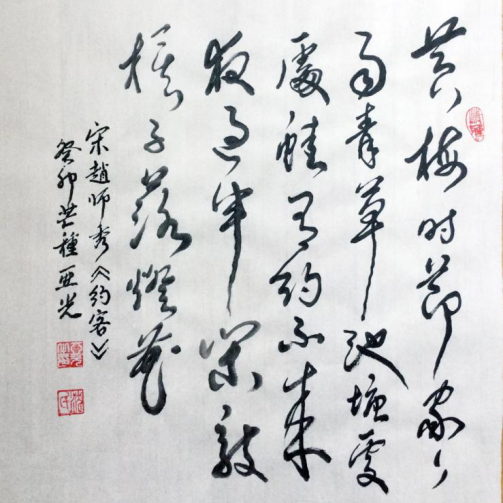 黄梅时节家々
雨青草池塘處
處蛙有约不来
夜过半闲敲
棋子落燈花
宋趙师秀《约客》
癸卯芒種亚光